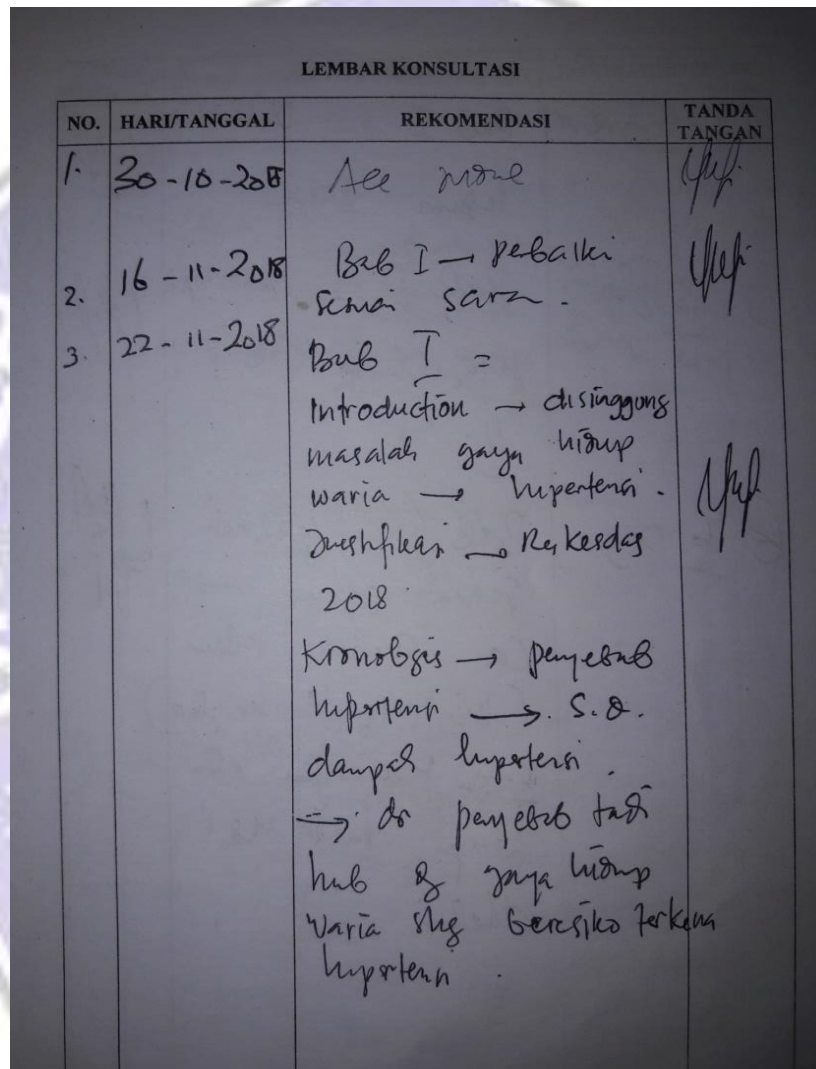 LEMBAR KONSULTASI
NO. HARI/TANGGAL REKOMENDASI TANDA TANGAN
1. 30-10-2018 Acc
2. 16-11-2018 Bab I → perbaiki
sesuai saran.
3. 22-11-2018 Bab I =
Introduction → disinggung
masalah gaya hidup
waria → hipertensi.
Justifikasi → Riskesdas
2018
Kronologis → penyebab
hipertensi → S.D.
dampak hipertensi.
→ dr penyebab tadi
hub dg gaya hidup
waria shg beresiko terkena
hipertensi.